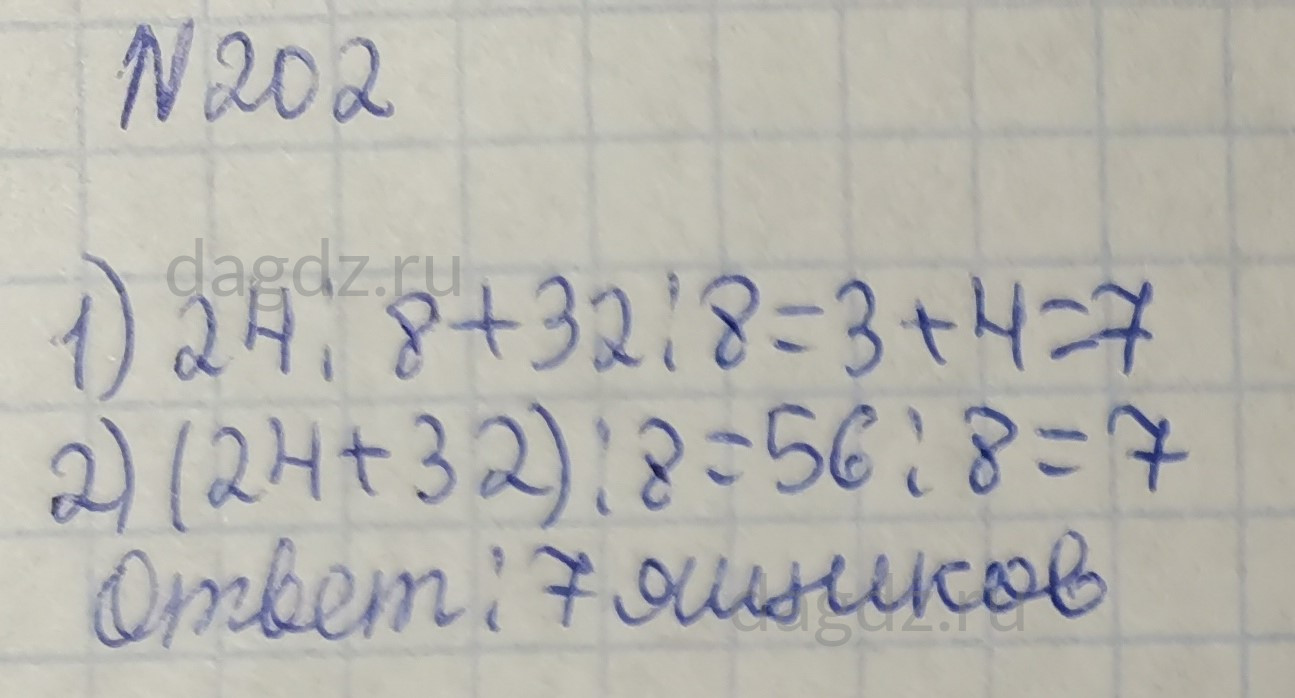 N 202
dagdz.ru
1) 24 : 8 + 32 : 8 = 3 + 4 = 7
2) (24 + 32) : 8 = 56 : 8 = 7
Ответ : 7 ящиков
dagdz.ru